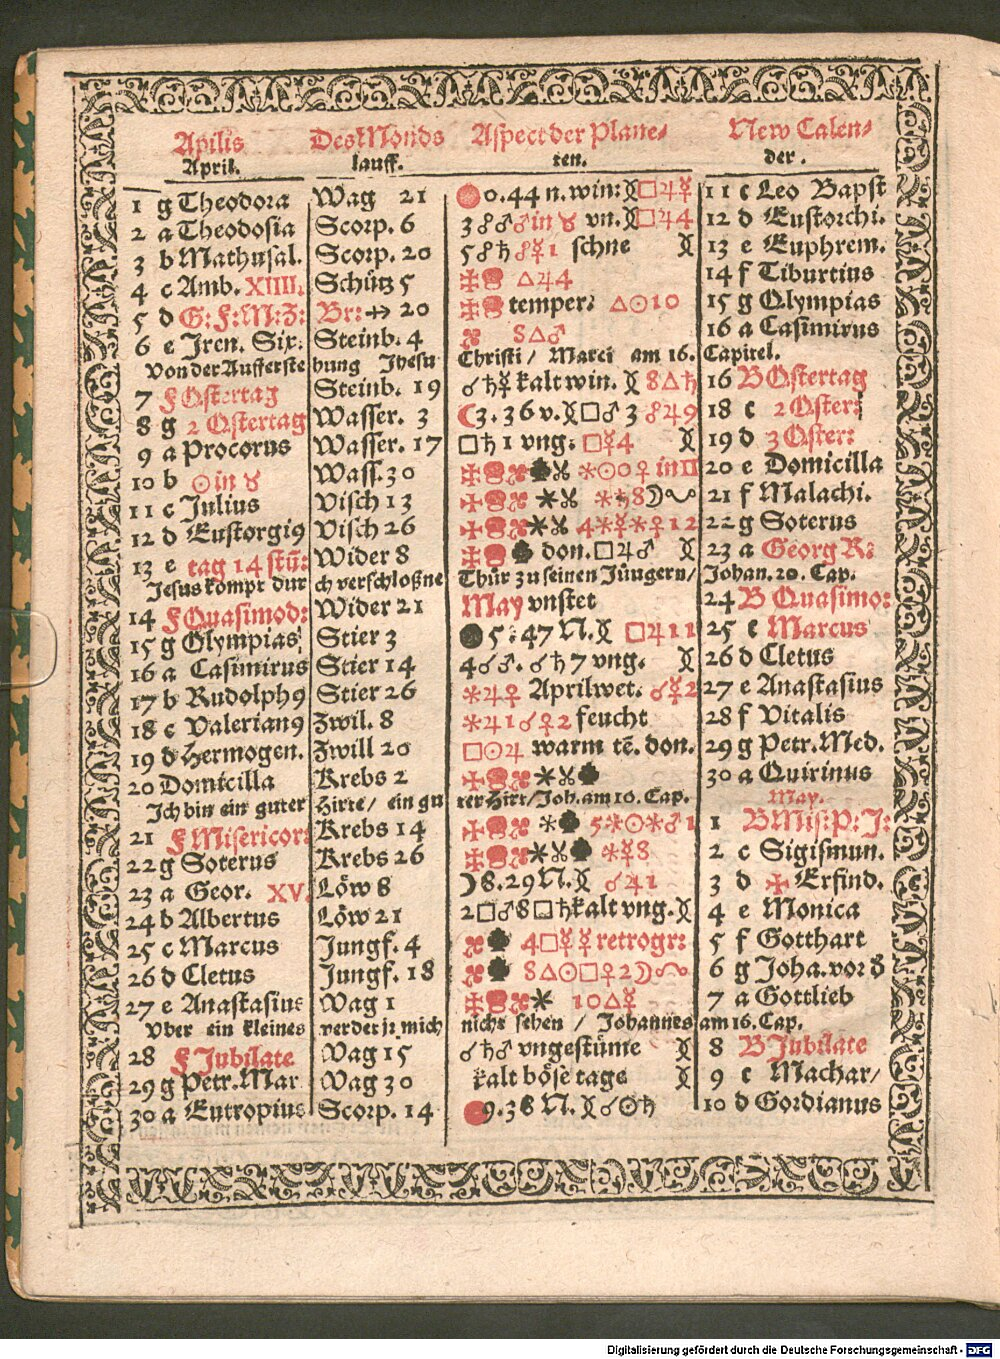 Apilis DesMonds Aspect der Plane- New Calen-
April. lauff. ten. der.
1 g Theodora Wag 21 0.44 n. win: ☿□♃☿ 11 c Leo Bapst
2 a Theodosia Scorp. 6 3☍♂♂in ♉ vn. □♃4 12 d Eustorchi.
3 b Mathusal. Scorp. 20 5☍♄☍☿1 schne 13 e Euphrem.
4 c Amb. XIIII. Schütz 5 △♃4 14 f Tiburtius
5 d G: F: M: Z: Br: ♐ 20 temper: △☉10 15 g Olympias
6 e Iren. Six. Steinb. 4 8△♂ 16 a Casimirus
Von der Aufferste hung Jhesu Christi / Marci am 16. Capitel.
7 f Ostertag Steinb. 19 ☌♄☿ kalt win. 8△♄ 16 B Ostertag
8 g 2 Ostertag Wasser. 3 ☾3.36 v. □♂3 ☍♃9 18 c 2 Oster:
9 a Procorus Wasser. 17 □♄1 vng. □☿4 19 d 3 Oster:
10 b ☉ in ♉ Wass. 30 ✶☉0 ♀ in ♊ 20 e Domicilla
11 c Julius Visch 13 21 f Malachi.
12 d Eustorgi9 Visch 26 4✶☿✶♀12 22 g Soterus
13 e tag 14 stü: Wider 8 don. □♃♂ 23 a Georg R:
Jesus kompt dur ch verschloßne Thür zu seinen Jüngern / Johan. 20. Cap.
14 f Quasimod: Wider 21 May vnstet 24 B Quasimo:
15 g Olympias Stier 3 5:47 N. □♃11 25 c Marcus
16 a Casimirus Stier 14 4☌♂. ☌♄7 vng. 26 d Cletus
17 b Rudolph9 Stier 26 ✶♃♀ Aprilwet. ☌☿2 27 e Anastasius
18 c Valerian9 Zwil. 8 ✶♃1☌♀2 feucht 28 f Vitalis
19 d Hermogen. Zwill 20 □☉♃ warm tē. don. 29 g Petr. Med.
20 Domicilla Krebs 2 30 a Quirinus
Ich bin ein guter Hirte / ein gu ter Hirt / Joh. am 10. Cap. May.
21 f Misericor: Krebs 14 5✶☉✶♂1 1 B Mis: P: J:
22 g Soterus Krebs 26 ✶☿8 2 c Sigismun.
23 a Geor. XV. Löw 8 ☽8.29 N. ☌♃1 3 d ✠ Erfind.
24 b Albertus Löw 21 2□♂8□♄ kalt vng. 4 e Monica
25 c Marcus Jungf. 4 4□☿ ☿ retrogr: 5 f Gotthart
26 d Cletus Jungf. 18 8△☉□♀2 6 g Joha. vor d
27 e Anastasius Wag 1 10△☿ 7 a Gottlieb
Vber ein kleines werdet jr mich nicht sehen / Johannes am 16. Cap.
28 f Jubilate Wag 15 ☌♄♂ vngestüme 8 B Jubilate
29 g Petr. Mar Wag 30 kalt böse tage 9 c Machar/
30 a Eutropius Scorp. 14 9.38 N. ☌☉♄ 10 d Gordianus
Digitalisierung gefördert durch die Deutsche Forschungsgemeinschaft - DFG